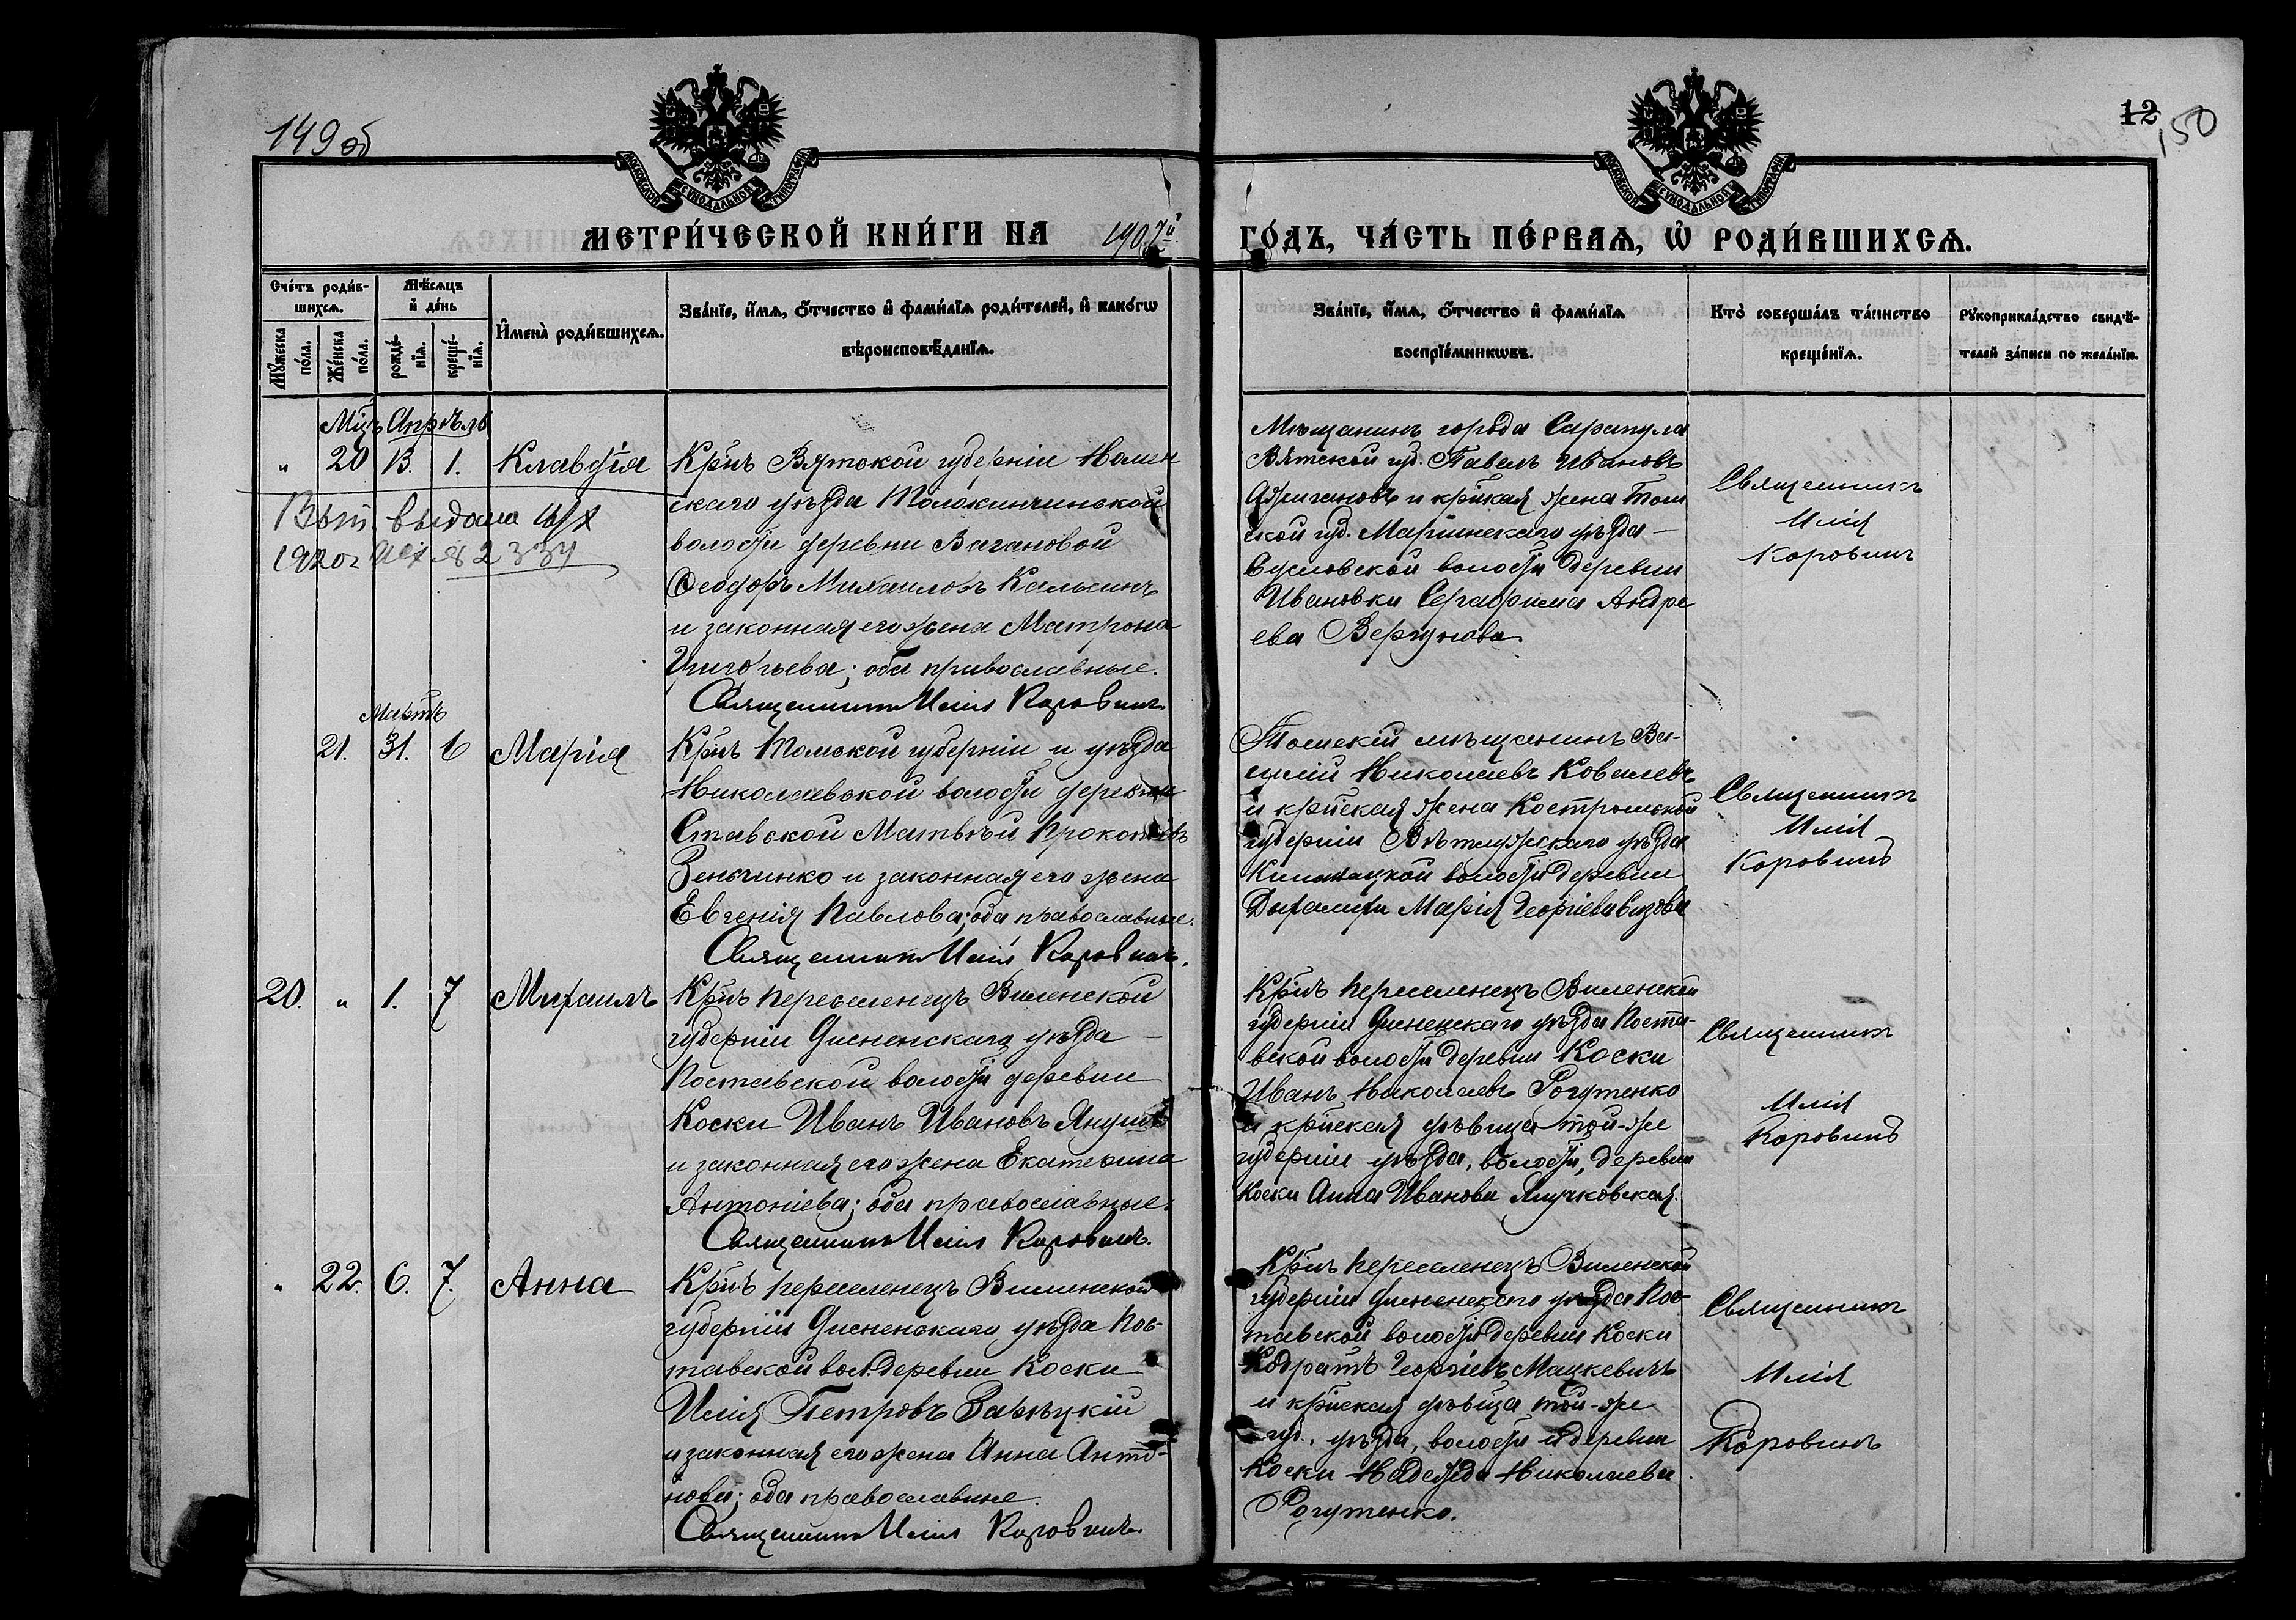 149 об
12
150
МОСКОВСКОЙ СѴНОДАЛЬНОЙ ТИПОГРАФІИ
МОСКОВСКОЙ СѴНОДАЛЬНОЙ ТИПОГРАФІИ
МЕТРИ́ЧЕСКОЙ КНИ́ГИ НА 1907й ГО́ДЪ, ЧА́СТЬ ПЕ́РВАѦ, Ѽ РОДИ́ВШИХСѦ.
Сче́тъ роди́в-
шихсѧ.
Мꙋ́жеска по́ла.
Же́нска по́ла.
Мѣ́сѧцъ
и҆ де́нь
рожде́-
нїѧ.
креще́-
нїѧ.
И҆мена̀ роди́вшихсѧ.
Зва́нїе, и҆́мѧ, ѻ҆́тчество и҆ фами́лїѧ роди́телей, и҆ како́гѡ
вѣроисповѣ́данїѧ.
Зва́нїе, и҆́мѧ, ѻ҆́тчество и҆ фами́лїѧ
воспрїе́мникѡвъ.
Кто̀ соверша́лъ та́инство
креще́нїѧ.
Рꙋкоприкла́дство свидѣ́-
телей за́писи по жела́нїю.
Мцъ Апрѣль
" 20 13. 1. Клавдія
Крнъ Вятской губерніи
скаго уѣзда
волости деревни Вагановой
Ѳеодоръ Михаиловъ Кальсинъ
и законная его жена Матрона
Григорьева; оба православные.
Священникъ Илія Коровинъ.
выдана
1920г № 2334
Мѣщанинъ города Сарапула
Вятской губ. Павелъ Ивановъ
и кр̃ская жена Том
ской губ. Маріинскаго уѣзда -
Сусловской волости деревни
Ивановки Серафима Андре
ева Вергунова
Священникъ
Илія
Коровинъ
Мартъ
21. 31. 6 Марія
Крнъ Томской губерніи и уѣзда
Николаевской волости деревни
Ставской Матвѣй Прокопьевъ
Зеньчинко и законная его жена
Евгенія Павлова; оба православные.
Священникъ Илія Коровинъ.
Томскій мѣщанинъ Ва-
силій Николаевъ Ковалевъ
и кр̃ская жена Костромской
губерніи Ветлужскаго уѣзда
волости деревни
Марія Георгіева
Священникъ
Илія
Коровинъ
20. " 1. 7 Михаилъ
Крнъ переселенецъ Виленской
губерніи Дисненскаго уѣзда -
Поставской волости деревни
Коски Иванъ Ивановъ
и законная его жена Екатерина
Антоніева; оба православные.
Священникъ Илія Коровинъ.
Крнъ переселенецъ Виленской
губерніи Дисненскаго уѣзда Поста-
вской волости деревни Коски
Иванъ Николаевъ Рогутенко
и кр̃ская дѣвица той-же
губерніи уѣзда, волости, деревни
Коски Анна Иванова
Священникъ
Илія
Коровинъ
" 22. 6. 7. Анна
Крнъ переселенецъ Виленской
губерніи Дисненскаго уѣзда Пос-
тавской вол. деревни Коски
Илія Петровъ Зарѣцкій
и законная его жена Анна Анто-
нова; оба православные.
Священникъ Илія Коровинъ.
Крнъ переселенецъ Виленской
губерніи Дисненскаго уѣзда Пос-
тавской волости деревни Коски
Кодратъ Георгіевъ Мацкевичъ
и кр̃ская дѣвица той-же
губ., уѣзда, волости и деревни
Коски Надежда Николаева
Рогутенко.
Священникъ
Илія
Коровинъ